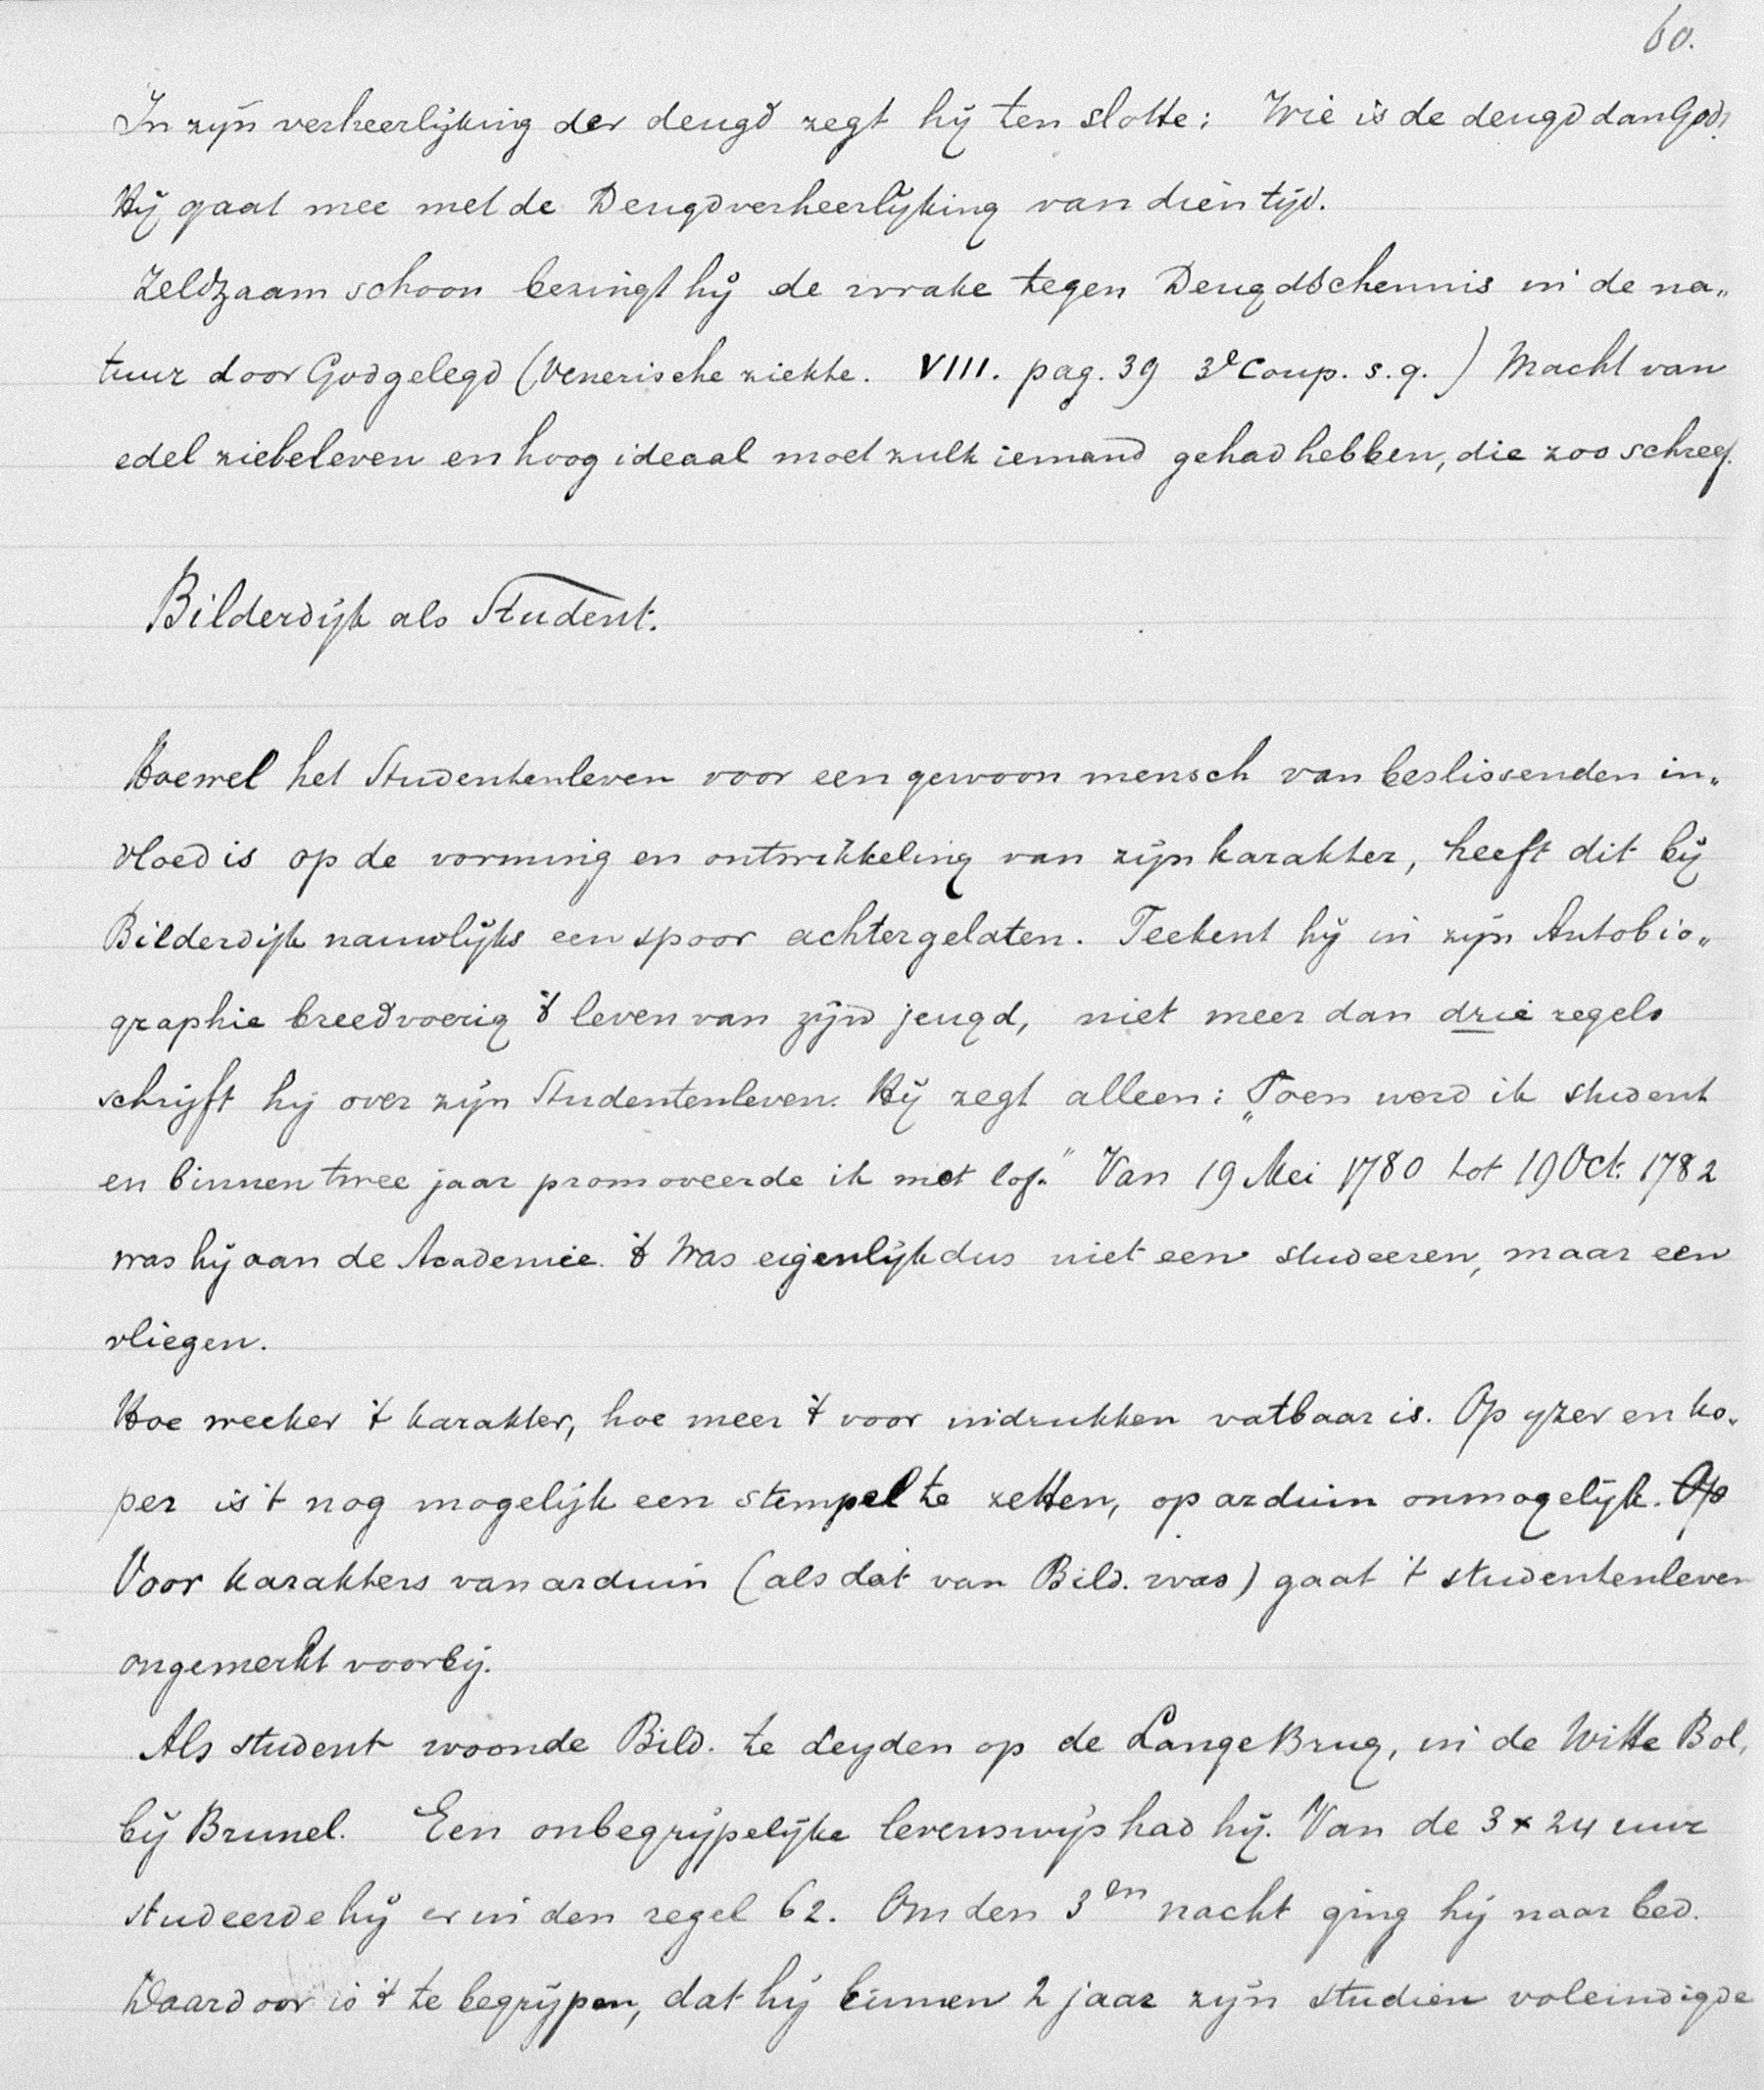 60.
In zijn verheerlijking der deugd zegt hij ten slotte: Wie is de deugd dan God?
Hij gaat mee met de Deugdverheerlijking van dien tijd.
Zeldzaam schoon bezingt hij de wrake tegen Deugdschennis in de na„
tuur door God gelegd (Venerische ziekte. VIII. pag. 39 3e Coup. s.q.) Macht van
edel zieleleven en hoog ideaal moet zulk iemand gehad hebben, die zoo schreef.
Bilderdijk als Student.
Hoewel het Studentenleven voor een gewoon mensch van beslissenden in„
vloed is op de vorming en ontwikkeling van zijn karakter, heeft dit bij
Bilderdijk nauwlijks een spoor achtergelaten. Teekent hij in zijn Autobio„
graphie breedvoerig 't leven van zijn jeugd, niet meer dan drie regels
schrijft hij over zijn Studentenleven. Hij zegt alleen: „Toen werd ik student
en binnen twee jaar promoveerde ik met lof." Van 19 Mei 1780 tot 19 Oct. 1782
was hij aan de Academie. 't Was eigenlijk dus niet een studeeren, maar een
vliegen.
Hoe weeker 't karakter, hoe meer 't voor indrukken vatbaar is. Op yzer en ko„
per is 't nog mogelijk een stempel te zetten, op arduin onmogelijk. Op
Voor karakters van arduin (als dat van Bild. was) gaat 't studentenleven
ongemerkt voorbij.
Als student woonde Bild. te Leyden op de Lange Brug, in de Witte Bol,
bij Brunel. Een onbegrijpelijke levenswijs had hij. Van de 3 x 24 uur
studeerde hij er in den regel 62. Om den 3en nacht ging hij naar bed.
Daardoor is 't te begrijpen, dat hij binnen 2 jaar zijn studien voleindigde